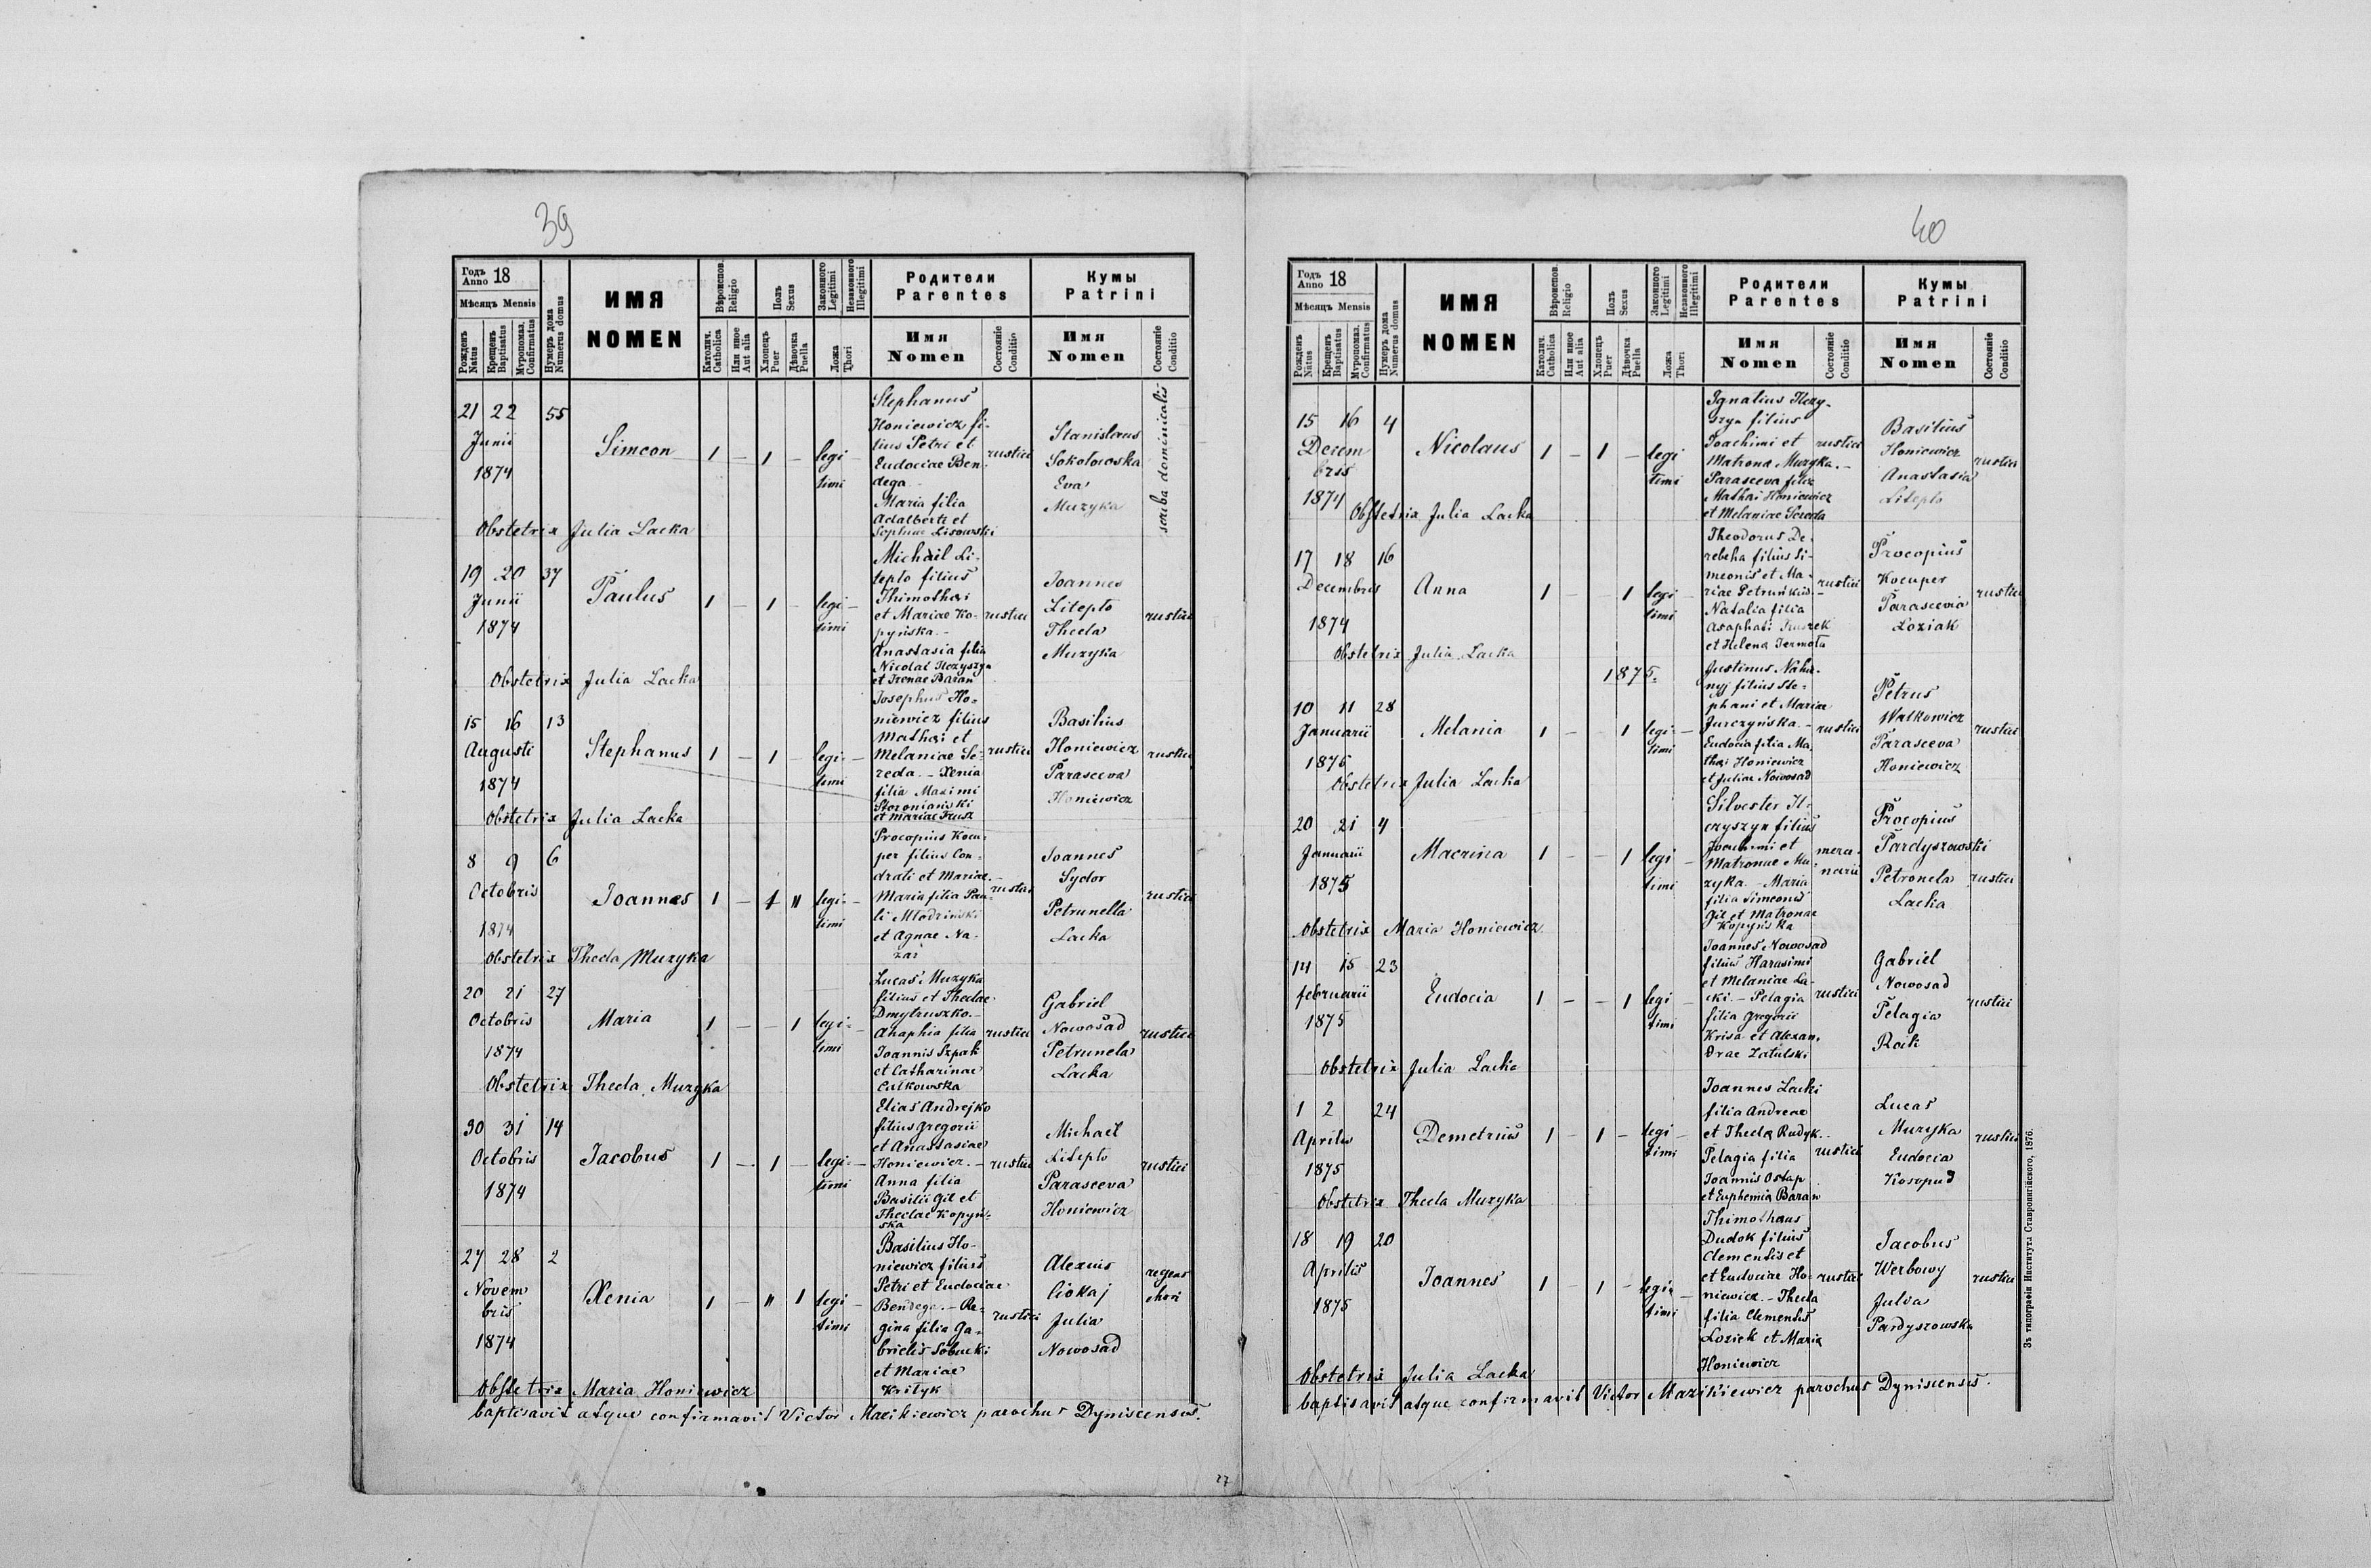 39
Годъ Anno 18
Мѣсяцъ Mensis
Рожденъ Natus
Крещенъ Baptisatus
Муропомаз. Confirmatus
Нумеръ дома Numerus domus
ИМЯ
NOMEN
Вѣроиспов. Religio
Католич. Catholica
Или иное Aut alia
Полъ Sexus
Хлопецъ Puer
Дѣвочка Puella
Законного Legitimi
Незаконного Illegitimi
Ложа Thori
Родители
Parentes
Имя
Nomen
Состояніе Conditio
Кумы
Patrini
Имя
Nomen
Состояніе Conditio
21 22 55
Junii
1874
Simeon
1 – 1 –
legi
timi
Stephanus
Honiewicz fi-
lius Petri et
Eudociae Ben-
dega
Maria filia
Adalberti et
Sophiae Lisowski
rustici
Stanislaus
Sokolowska
Eva
Muzyka
scriba dominicalis
Obstetrix Julia Lacka
19 20 37
Junii
1874
Paulus
1 – 1 –
legi-
timi
Michail Li-
tepto filius
Thimothei
et Mariae Ko-
pyńska.-
Anastasia filia
Nicolai Ilczyszyn
et Irenae Baran
rustici
Joannes
Litepto
Thecla
Muzyka
rustici
Obstetrix Julia Lacka
15 16 13
Augusti
1874
Stephanus
1 – 1 –
legi-
timi
Josephus Ho-
niewicz filius
Mathei et
Melaniae Se-
reda.- Xenia
filia Maximi
Storonianski
et Mariae Trusz
rustici
Basilius
Honiewicz
Parasceva
Honiewicz
rustici
Obstetrix Julia Lacka
8 9 6
Octobris
1874
Joannes
1 – 1 "
legi-
timi
Procopius Kocu-
per filius Con-
drati et Mariae.-
Maria filia Pau-
li Mlodzinski
et Agnae Na-
zar
rustici
Joannes
Sydor
Petrunella
Lacka
rustici
Obstetrix Thecla Muzyka
20 21 27
Octobris
1874
Maria
1 – – 1
legi-
timi
Lucas Muzyka
filius et Theclae
Dmytruszko.-
Ahaphia filia
Joannis Szpak
et Catharinae
Calkowska
rustici
Gabriel
Nowosad
Petrunela
Lacka
rustici
Obstetrix Thecla Muzyka
30 31 14
Octobris
1874
Jacobus
1 – 1 –
legi-
timi
Elias Andrejko
filius Gregorii
et Anastasiae
Honiewicz.-
Anna filia
Basilii Gil et
Theclae Kopyń-
ska
rustici
Michael
Litepto
Parasceva
Honiewicz
rustici
27 28 2
Novem
bris
1874
Xenia
1 – " 1
legi
timi
Basilius Ho-
niewicz filius
Petri et Eudociae
Bendega.- Re-
gina filia Ga-
brielis Sobucki
et Mariae
Krityk
rustici
Alexius
Julia
Nowosad
regens
chori
Obstetrix Maria Honiewicz
baptisavit atque confirmavit Victor Mazikiewicz parochus Dyniscensis.
27
40
Годъ Anno 18
Мѣсяцъ Mensis
Рожденъ Natus
Крещенъ Baptisatus
Муропомаз. Confirmatus
Нумеръ дома Numerus domus
ИМЯ
NOMEN
Вѣроиспов. Religio
Католич. Catholica
Или иное Aut alia
Полъ Sexus
Хлопецъ Puer
Дѣвочка Puella
Законного Legitimi
Незаконного Illegitimi
Ложа Thori
Родители
Parentes
Имя
Nomen
Состояніе Conditio
Кумы
Patrini
Имя
Nomen
Состояніе Conditio
15 16 4
Decem
bris
1874
Nicolaus
1 – 1 –
legi
timi
Ignatius Ilczy-
szyn filius
Joachimi et
Matrona Muzyka.-
Parasceva filia
Mathei Honiewicz
et Melaniae Sereda
rustici
Basilius
Honiewicz
Anastasia
Litepto
rustici
Obstetrix Julia Lacka
17 18 16
Decembris
1874
Anna
1 – 1
legi-
timi
Theodorus De-
rebcha filius Si-
meonis et Ma-
riae Petrunkiw.-
Natalia filia
Asaphati Kuszek
et Helena Jermota
rustici
Procopius
Kocuper
Parascevia
Loziak
rustici
Obstetrix Julia Lacka
1875.
10 11 28
Januarii
1875
Melania
1 – 1
legi-
timi
Justinus Naho-
nyj filius Ste-
phani et Mariae
Jurczyńska.-
Eudocia filia Ma-
thei Honiewicz
et Juliae Nowosad
rustici
Petrus
Watkowicz
Parasceva
Honiewicz
rustici
Obstetrix Julia Lacka
20 21 4
Januarii
1875
Macrina
1 – – 1
legi
timi
Silvester Il-
czyszyn filius
Joachimi et
Matronae Mu-
zyka.- Maria
filia Simeonis
Gil et Matronae
Kopyńska
merce-
narii
Procopius
Pardyszowski
Petronela
Lacka
rustici
Obstetrix Maria Honiewicz
14 15 23
februarii
1875
Eudocia
1 – – 1
legi
timi
Joannes Nowosad
filius Harasimi
et Melaniae La-
cki.- Pelagia
filia Gregorii
Krisa et Alexan-
drae Zatulski
rustici
Gabriel
Nowosad
Pelagia
Rak
rustici
Obstetrix Julia Lacka
1 2 24
Aprilis
1875
Demetrius
1 – 1 –
legi
timi
Joannes Lacki
filia Andreae
et Thecla Rudyk.-
Pelagia filia
Joannis Ostap
et Euphemia Baran
rustici
Lucas
Muzyka
Eudocia
Kosopud
rustici
Obstetrix Thecla Muzyka
18 19 20
Aprilis
1875
Joannes
1 – 1 –
legi-
timi
Thimotheus
Dudok filius
Clementis et
et Eudociae Ho-
niewicz.- Thecla
filia Clementis
Loziek et Maria
Honiewicz
rustici
Jacobus
Werbowy
Julia
Pardyszowska
rustici
Obstetrix Julia Lacka
baptisavit atque confirmavit Victor Mazikiewicz parochus Dyniscensis.
Зъ типографіи Института Ставропигійского, 1876.